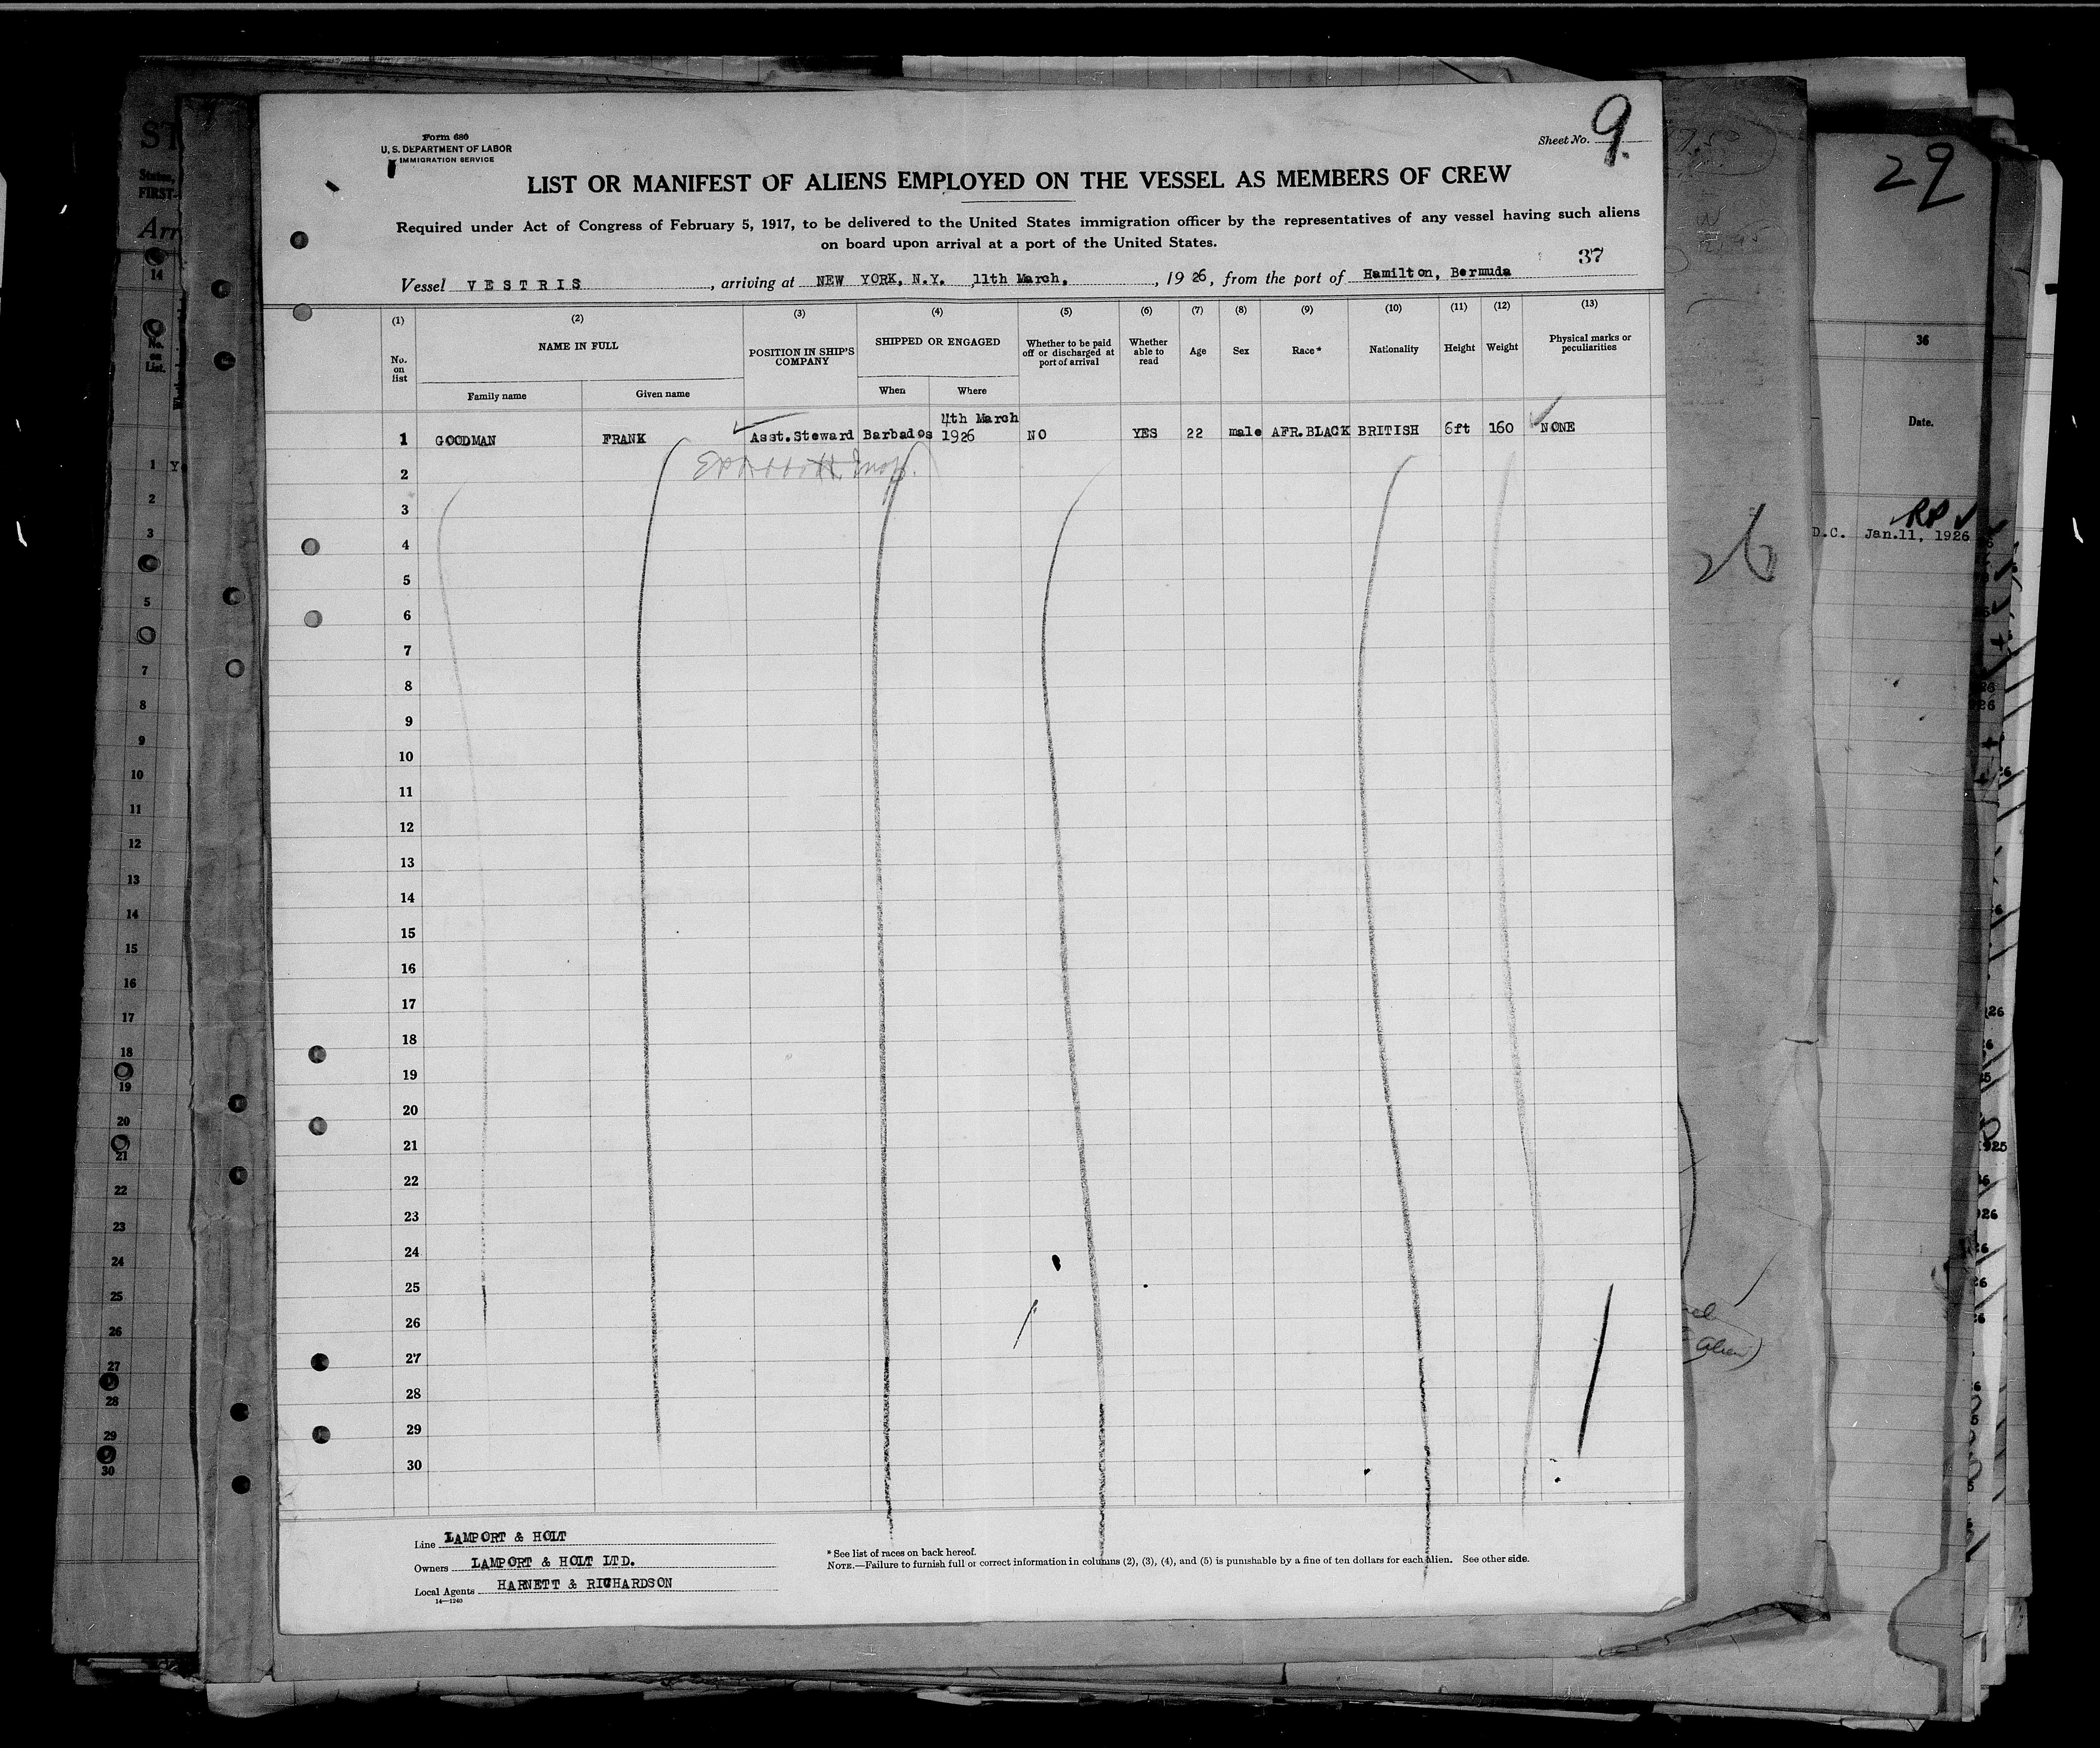 Form 680
U. S. DEPARTMENT OF LABOR
IMMIGRATION SERVICE
Sheet No. 9.
LIST OR MANIFEST OF ALIENS EMPLOYED ON THE VESSEL AS MEMBERS OF CREW
Required under Act of Congress of February 5, 1917, to be delivered to the United States immigration officer by the representatives of any vessel having such aliens
on board upon arrival at a port of the United States.
37
Vessel VESTRIS, arriving at NEW YORK, N.Y. ,11th March, , 1926, from the port of Hamilton, Bermuda
(1) (2) (3) (4) (5) (6) (7) (8) (9) (10) (11) (12) (13)
No. on list NAME IN FULL Family name Given name POSITION IN SHIP'S COMPANY SHIPPED OR ENGAGED When Where Whether to be paid off or discharged at port of arrival Whether able to read Age Sex Race* Nationality Height Weight Physical marks or peculiarities
4th March
1 GOODMAN FRANK Asst.Steward Barbados 1926 NO YES 22 male AFR.BLACK BRITISH 6ft 160 NONE
2
3
4
5
6
7
8
9
10
11
12
13
14
15
16
17
18
19
20
21
22
23
24
25
26
27
28
29
30
Line LAMPORT & HOLT
Owners LAMPORT & HOLT LTD.
Local Agents HARNETT & RICHARDSON
14—1240
* See list of races on back hereof.
NOTE.—Failure to furnish full or correct information in columns (2), (3), (4), and (5) is punishable by a fine of ten dollars for each alien. See other side.
29
36
Date.
RP
D.C. Jan.11, 1926
26
ST
States,
FIRST-
Arr
14
No. on List.
1 Y
2
3
5
7
8
9
10
11
12
13
14
15
16
17
18
19
20
21
22
23
24
25
26
27
28
29
30